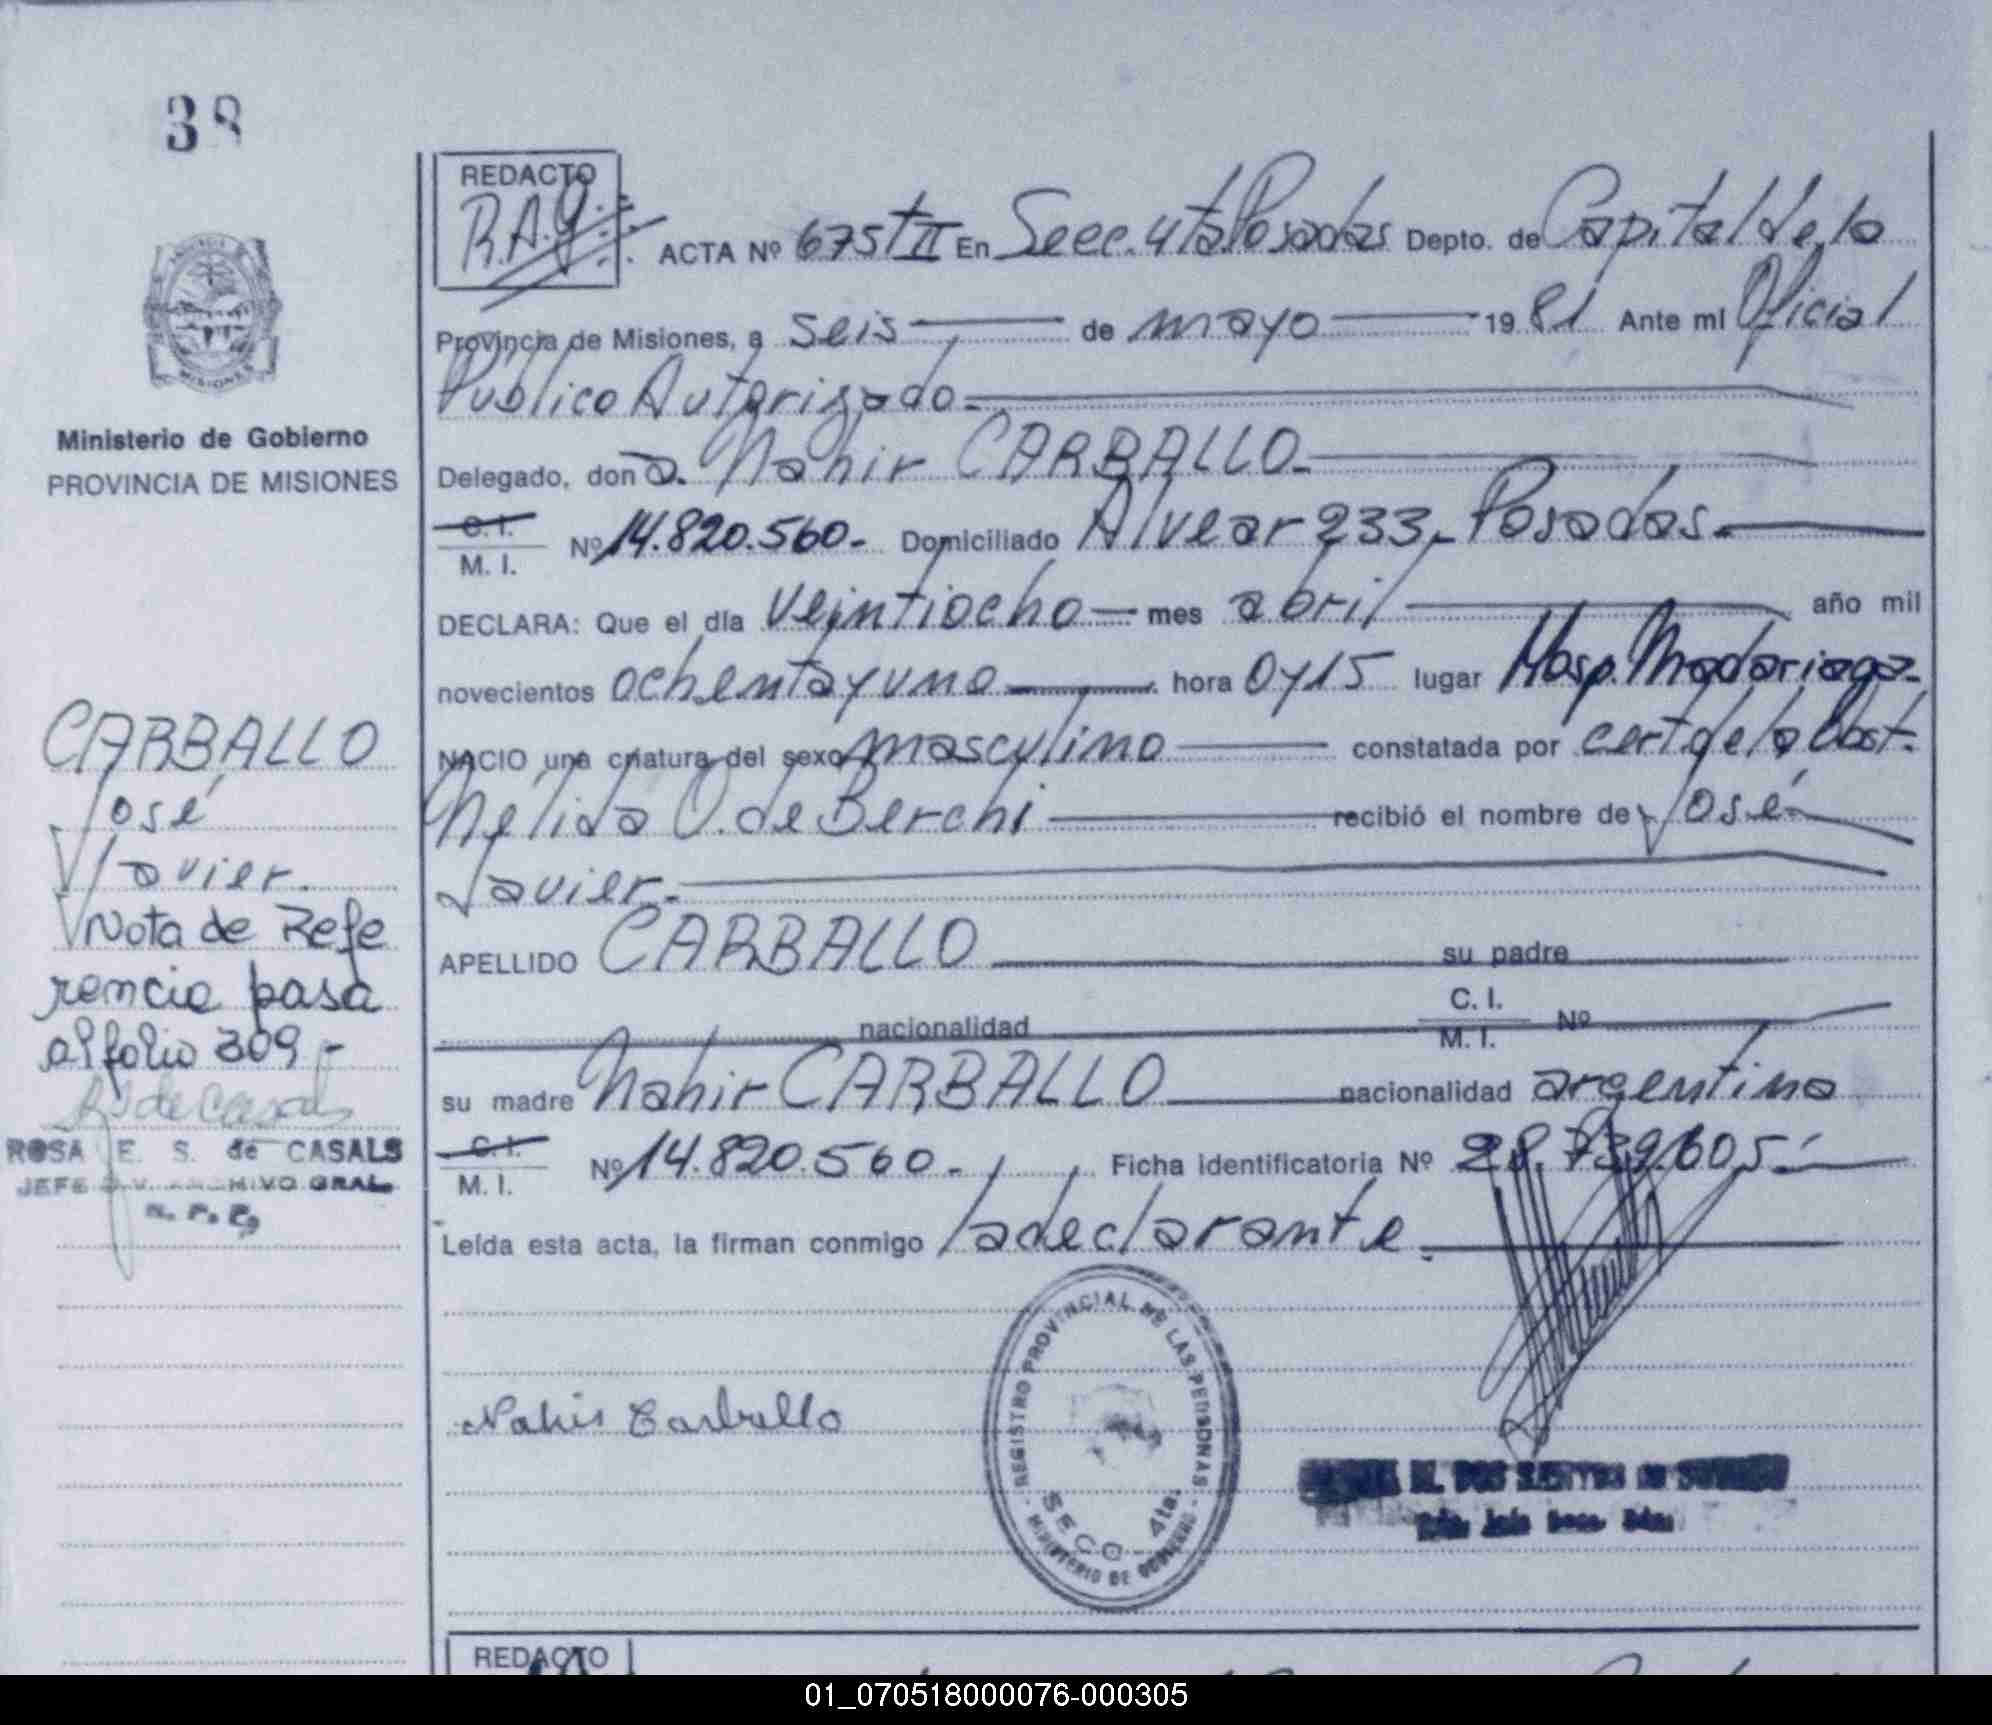 38
REDACTO
R.A.G.
ACTA Nº 675 tII En Secc. 4ta. Posadas Depto. de Capital de la
Provincia de Misiones, a seis de mayo 1981 Ante mí Oficial
Público Autorizado.
Delegado, don a. Nahir CARBALLO.
C. I.
M. I. Nº 14.820.560.- Domiciliado Alvear 233, Posadas.
DECLARA: Que el día veintiocho mes abril año mil
novecientos ochenta y uno hora 0 y 15 lugar Hosp. Madariaga.
NACIO una criatura del sexo masculino constatada por cert de la Obst.
Nélida O. de Berchi recibió el nombre de José
Javier.
APELLIDO CARBALLO su padre
nacionalidad C. I.
M. I. Nº
su madre Nahir CARBALLO nacionalidad argentina
C. I.
M. I. Nº 14.820.560.- Ficha identificatoria Nº 28.739.605.-
Leída esta acta, la firman conmigo la declarante.
Nahir Carballo
REGISTRO PROVINCIAL DE LAS PERSONAS
SECC. 4ta.
MINISTERIO DE GOBIERNO
MISIONES
Ministerio de Gobierno
PROVINCIA DE MISIONES
CARBALLO
José
Javier.
Nota de Refe
rencia pasa
al folio 309.-
R S de Casals
ROSA E. S. de CASALS
JEFE DIV. ARCHIVO GRAL.
R. P. P.
REDACTO
01_070518000076-000305